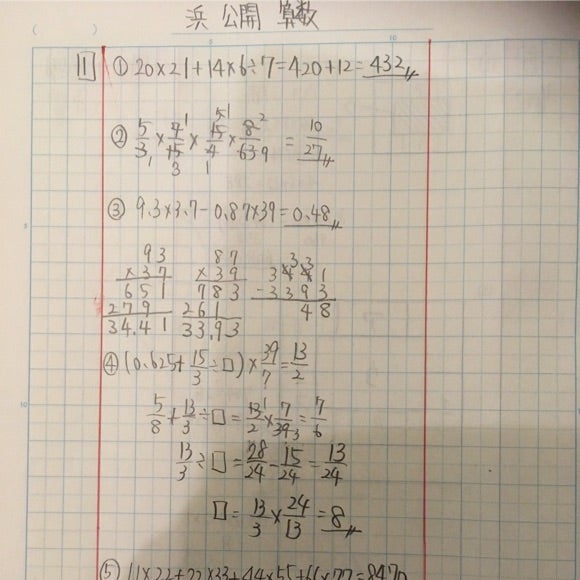 浜 公開 算数
( )
5 10
1 ① 20×21+14×6÷7=420+12=432
② 5/3×7/15×15/4×8/63=10/27
③ 9.3×3.7-0.87×39=0.48
93 87 3441
×37 ×39 -3393
651 783 48
279 261
34.41 33.93
④ (0.625+15/3÷□)×39/7=13/2
5/8+13/3÷□=13/2×7/39=7/6
13/3÷□=28/24-15/24=13/24
□=13/3×24/13=8
⑤ 11×22+22×33+44×55+66×77=8470